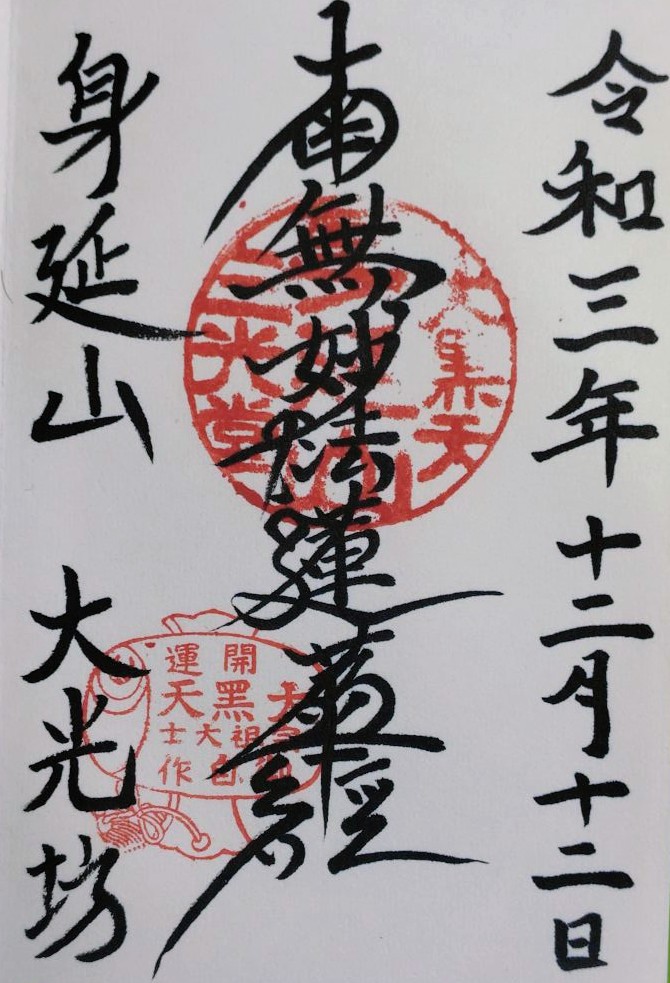 令和三年十二月十二日
南無妙法蓮華經
身延山 大光坊
大黒天
三光堂
開運
大黑天
宗祖大士
自作